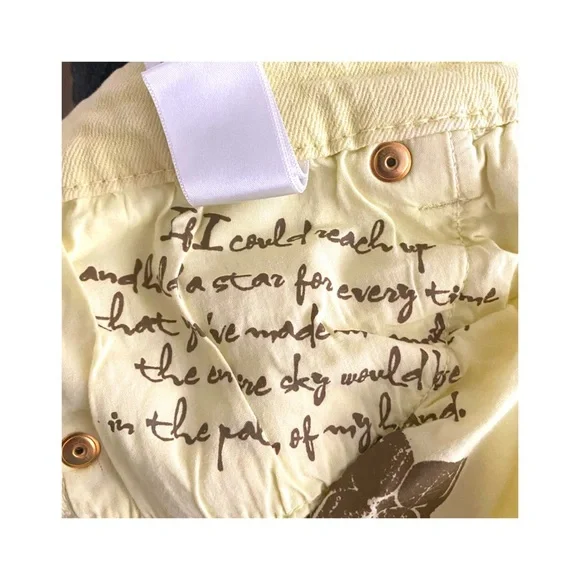 If I could reach up
and hld a star for every time
that y've made m smil
the enre sky would be
in the pal of my hand.